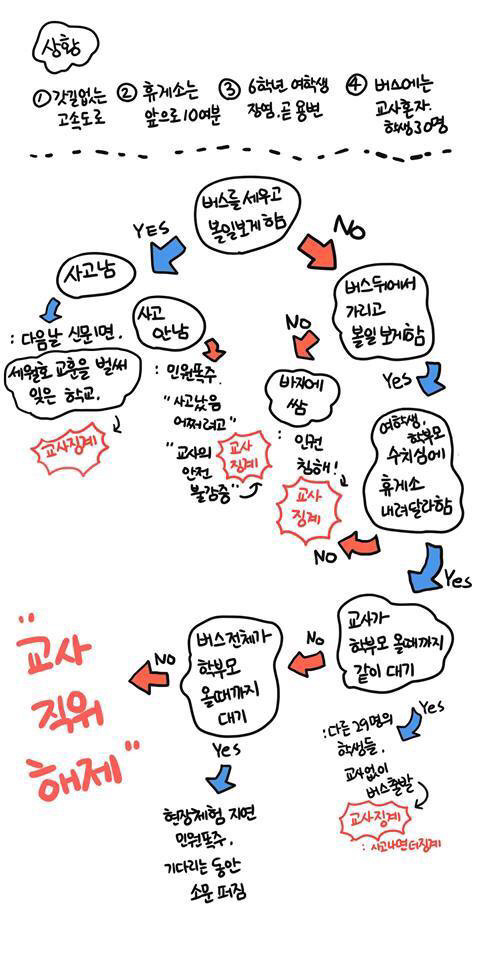 상황
① 갓길없는
고속도로
② 휴게소는
앞으로 10여분
③ 6학년 여학생
장염. 곧 용변
④ 버스에는
교사혼자.
학생30명
버스를 세우고
볼일보게 함
YES
NO
사고남
: 다음날 신문1면.
세월호 교훈을 벌써
잊은 학교.
교사징계
사고
안남
: 민원폭주.
"사고났음
어쩌려고"
"교사의
안전
불감증"
교사
징계
버스뒤에서
가리고
볼일 보게함
NO
바지에
쌈
: 인권
침해!
교사
징계
Yes
여학생,
학부모
수치심에
휴게소
내려달라함
NO
Yes
교사가
학부모 올때까지
같이 대기
Yes
: 다른 29명의
학생들.
교사없이
버스출발
교사징계
: 사고나면 더징계
No
버스전체가
학부모
올때까지
대기
Yes
현장체험 지연
민원폭주.
기다리는 동안
소문 퍼짐
NO
"교사
직위
해제"